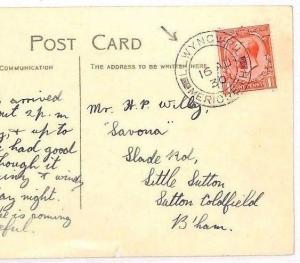 POST CARD
COMMUNICATION
THE ADDRESS TO BE WRITTEN HERE
LLWYNGWRIL
16 AU
30
MERION
PENNY
1
arrived
out 2 p.m
& up to
had good
though it
& windy
day night.
is coming
Mr. H. P. Willey,
"Savona"
Slade Rd,
Little Sutton
Sutton Coldfield
B'ham.